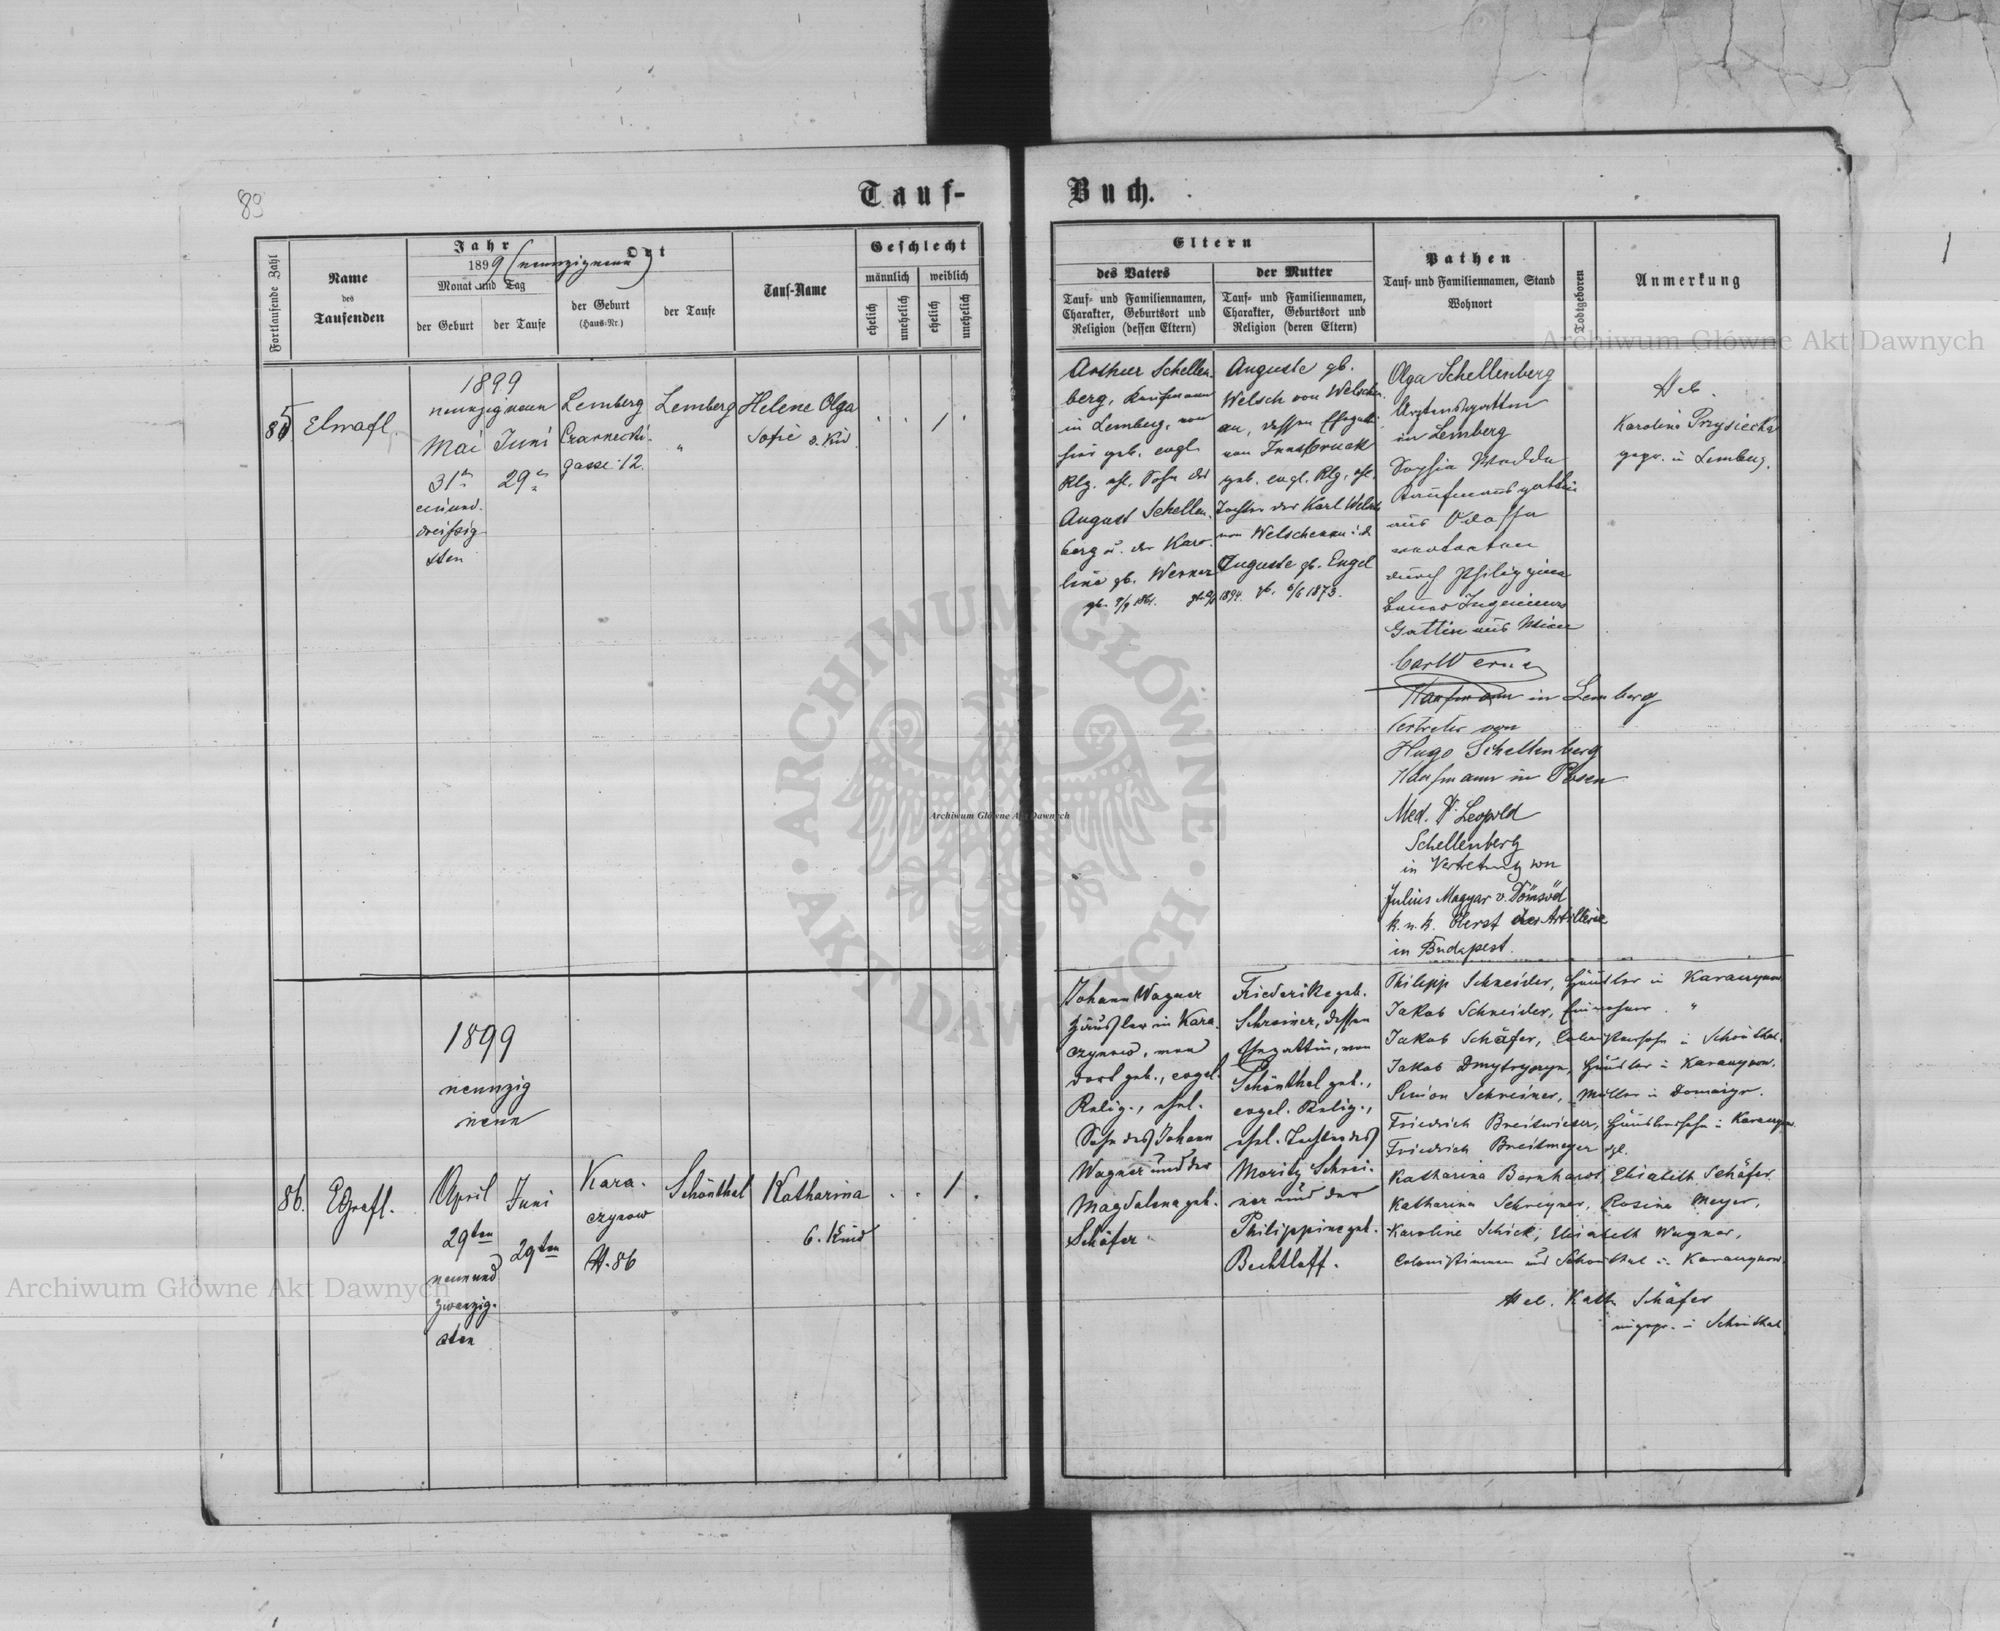 89
Tauf-
Buch.
1
Fortlaufende Zahl
Name
des
Taufenden
Jahr
1899 (neunzigneun)
Monat und Tag
der Geburt
der Taufe
Ort
der Geburt
(Haus-Nr.)
der Taufe
Tauf-Name
Geschlecht
männlich
weiblich
ehelich
unehelich
ehelich
unehelich
Eltern
des Vaters
Tauf- und Familiennamen,
Charakter, Geburtsort und
Religion (dessen Eltern)
der Mutter
Tauf- und Familiennamen,
Charakter, Geburtsort und
Religion (deren Eltern)
Pathen
Tauf- und Familiennamen, Stand
Wohnort
Todtgeboren
Anmerkung
85
1899
neunzigneun
Mai
31
einund-
dreißig
sten
Juni
29
Lemberg
Czarnecki-
gasse 12.
Lemberg
"
Helene Olga
Sofie
1
Arthur Schellen-
berg, Kaufmann
in Lemberg, von
hier geb. evgl.
Rlg. ehl. Sohn des
August Schellen-
berg u. der Karo-
line gb. Werner
Auguste gb.
Welsch von Welschen-
au, dessen Ehegattin
von Innsbruck
geb. evgl. Rlg. ehl.
Tochter des Karl Welsch
von Welschenau u. d.
Auguste gb. Engel
1894. gb. 6/6 1873.
Olga Schellenberg
Arztensgattin
in Lemberg
Sophie
Kaufmannsgattin
aus Odessa
vertreten
durch Philippine
Ingenieurs
Gattin aus Wien
Carl Werner
Kaufmann in Lemberg
Vertreter von
Hugo Schellenberg
Kaufmann in Posen
Med. Dr. Leopold
Schellenberg
in Vertretung von
Julius Magyar v. Dömsöd
k. u. k. Oberst der Artillerie
in Budapest.
Heb.
Karolina Przysiecka
gepr. in Lemberg.
86.
1899
neunzig
neun
April
29ten
neunund
zwanzig-
sten
Juni
29ten
Kara-
czynow
N. 86
Schönthal
Katharina
6. Kind
1
Johann Wagner
Häusler in Kara-
czynow, von
dort geb., evgel.
Relig., ehel.
Sohn des Johann
Wagner und der
Magdalena geb.
Schäfer
Friederike geb.
Schreiner, dessen
Ehegattin, von
Schönthal geb.,
evgel. Relig.,
ehel. Tochter des
Moritz Schrei-
ner und der
Philippine geb.
Bechtloff.
Philipp Schneider, Häusler in Karaczynow
Jakob Schneider, Einwohner "
Jakob Schäfer, Colonistensohn in Schönthal.
Jakob Dmytryszyn, Häusler in Karaczynow.
Simon Schreiner, Müller in
Friedrich Breitwieser, Häuslerssohn in Karaczynow
Friedrich Breitmeyer dgl.
Katharina Bernhardt, Elisabeth Schäfer
Katharina Schreyner, Rosina Meyer,
Karoline Schick, Elisabeth Wagner,
Colonistinnen aus Schönthal u. Karaczynow.
Heb. Kath. Schäfer
ungepr. in Schönthal
Archiwum Główne Akt Dawnych
Archiwum Główne Akt Dawnych
Archiwum Główne Akt Dawnych
ARCHIWUM GŁÓWNE AKT DAWNYCH